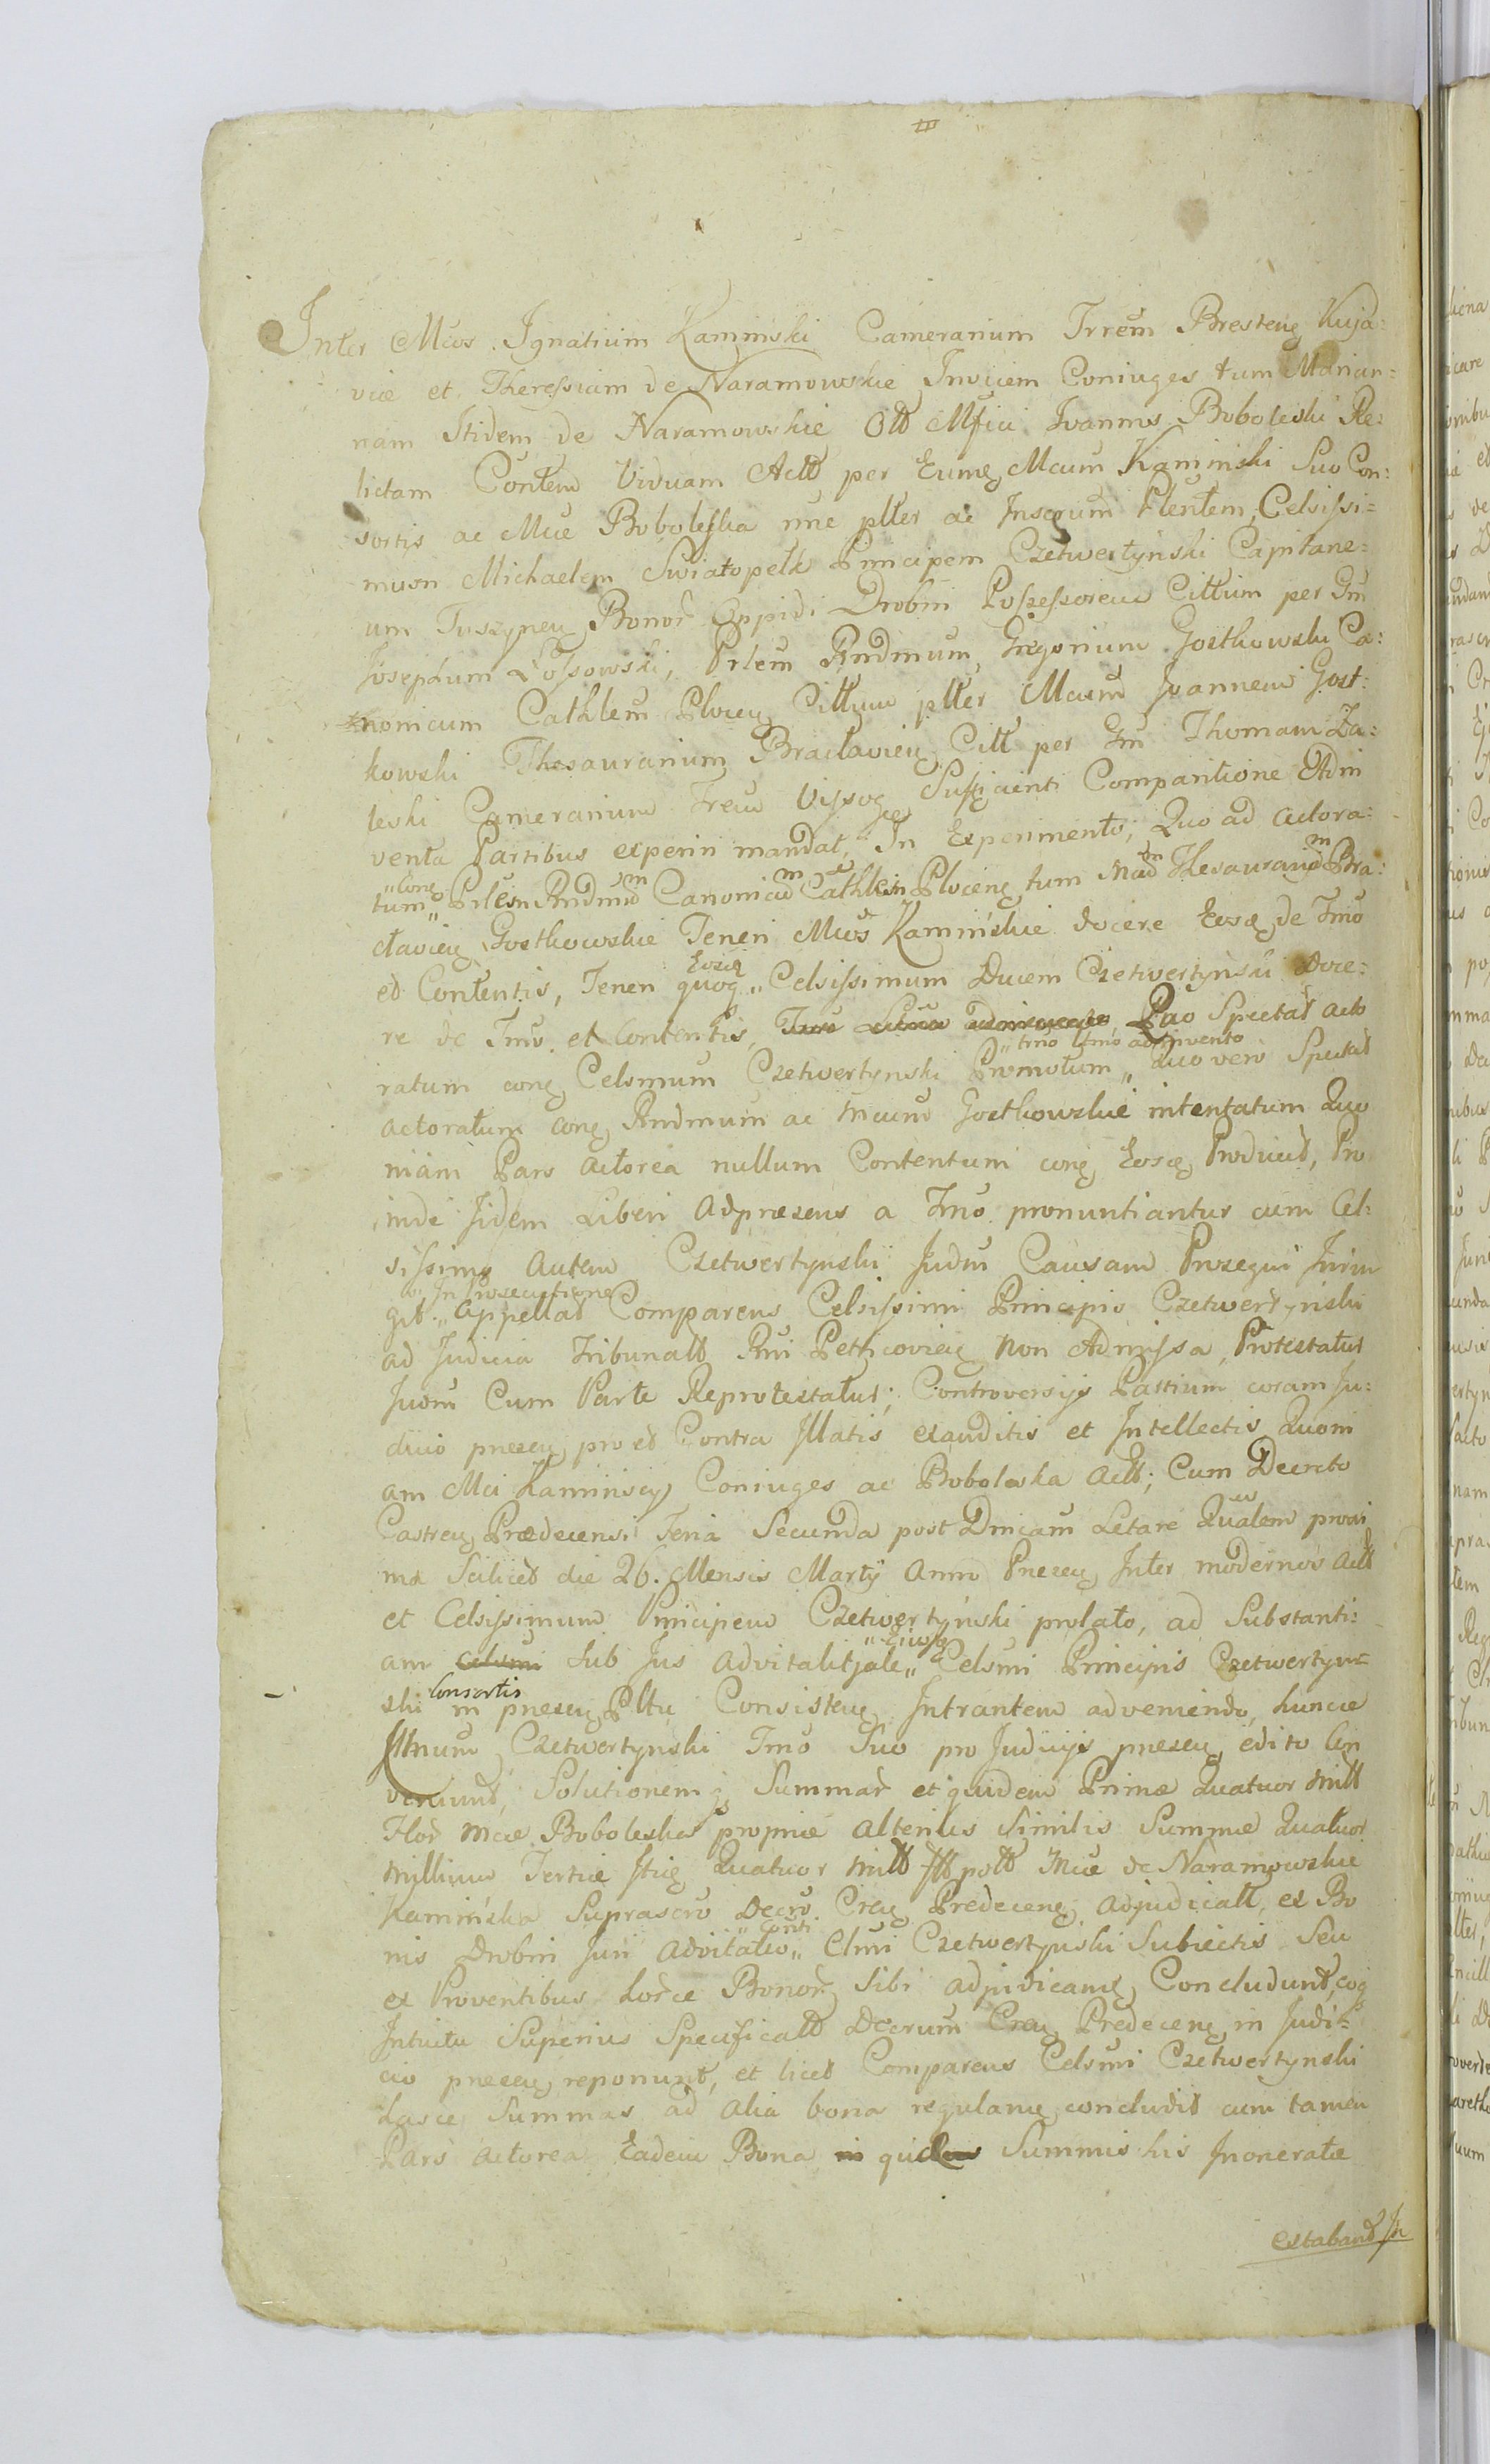 Inter Mcos Ignatium Kaminski Camerarium Trrem Bresteng Kuja=
viæ et Theressiam de Naramowskie Invicem Coniuges tum Marian=
nam Itidem de Naramowskie Olb Mfici Ioannis Boboleski Re=
lictam Contem Viduam Actb per Eumq Mcum Kaminski Suo Con=
sortis ac Mcæ Boboleska nne pltter ac Insequm Plentem, Celsissi=
mum Michaelem Swiatopelk Principem Czetwertynski Capitane=
um Tuszyneng Bonor Oppidi Drobin Possessorem Cittum per Gm
Josephum Lossowski, Prlem Rndmum Gregorium Gostkowski Ca=
nonicum Cathlem Ploceng Cittum pltter Mcum Joannem Gost=
kowski Thesaurarium Braclavieng Citt per Gm Thomam Za=
leski Camerarium Trem Vissog Sufficienti Comparitione Adin
venta Partibus experiri mandat, In Experimento, Quo ad actora=
tum "cong Prlem Rndmum Canonicum Cathlem Ploceng tum Mcum Thesaurarium Bra=
clavieng Gostkowskie Teneri Mcos Kaminskie docere Eosq de Tmo
et Contentis, Teneri quoq "Eosq Celsissimum Ducem Czetwertynski doce=
re de Tmo et Contentis, Quo Spectat acto
ratum cong Celsmum Czetwertynski Promotum "tmo adinvento quo vero Spectat
actoratum cong Rndmum ac Mcum Gostkowskie intentatum Quo
niam Pars actorea nullum Contentum cong Eosq Producit, Pro
inde Jidem Liberi adpræsens a Tmo pronuntiantur cum Cel=
sissimo autem Czetwertynski Judm Causam Prosequi Injun
git. "In Prosecutione Appellat Comparens Celsissimi Principis Czetwertynski
ad Judicia Tribunalb Rni Petricovieng non Admissa, Protestatur
Judm Cum Parte Reprotestatur; Controversijs Partium coram Ju=
dicio præseng pro et Contra Illatis exauditis et Intellectis Quoni
am Mci Kaminscy Coniuges ac Boboleska Actb; Cum Decreto
Castreng Prædecensi Feria Secunda post Dnicam Letare Qualem proxi
ma Scilicet die 26. Mensis Martij Anno Præseng Inter modernos Actb
et Celsissimum Principem Czetwertynski prolato, ad Substanti=
am Sub Jus advitalitiale "Eiusq Celsmi Principis Czetwertyn=
ski Consortis in præseng Pltu Consisteng Intrantem adveniendo, huncce
Illmum Czetwertynski Tmo Suo pro Judicijs præseng edito Con
veniunt, Solutionemq Summar et quidem Primæ Quatuor mill
Flor Mcæ Boboleska propriæ alterius Similis Summæ Quatuor
millium Tertiæ Itiq Quatuor millb Fllb pollb Mcæ de Naramowskie
Kaminska Suprascro Decro Creng Predeceng adjudicatt, ex Bo
nis Drobin Juri advitalio "Conti Clmi Czetwertynski Subiectis Seu
ex Proventibus horce Bonor Sibi adjudicang Concludunt, coq
Intuitu Superius Specificatb Decrum Creng Predeceng in Judi=
cio præseng reponunt, et licet Comparens Celsmi Czetwertynski
hasce Summas ad alia bona regulang concludit cum tamen
Pars actorea Eadem Bona Summis his Inoneratæ
extabant In